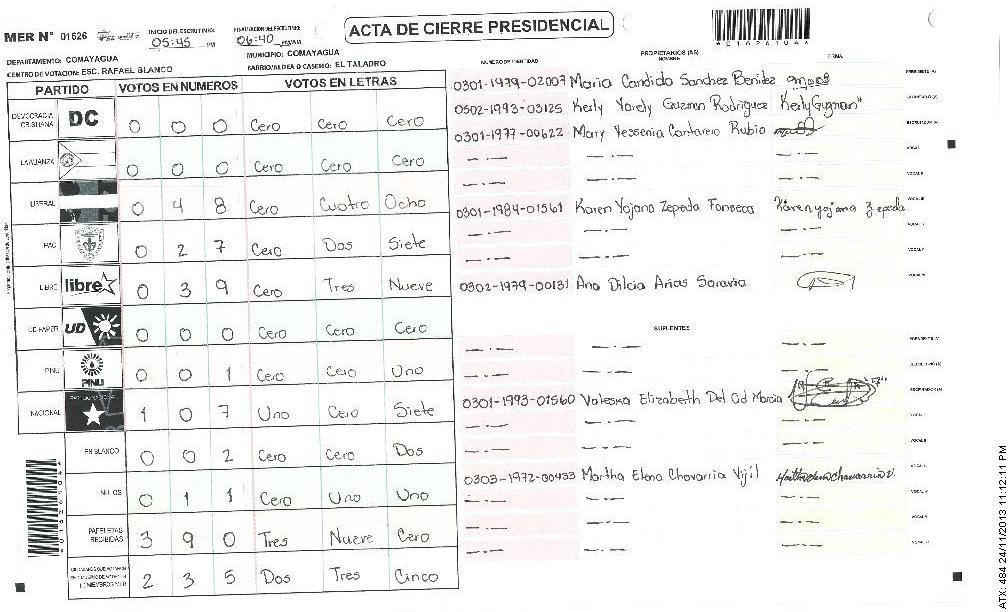 ACTA DE CIERRE PRESIDENCIAL
MER N° 01626
INICIO DEL ESCRUTINIO: 05:45 PM
FINALIZACION DEL ESCRUTINIO: 06:40 PM/AM
DEPARTAMENTO: COMAYAGUA
MUNICIPIO: COMAYAGUA
CENTRO DE VOTACION: ESC. RAFAEL BLANCO
BARRIO/ALDEA O CASERIO: EL TALADRO
PARTIDO VOTOS EN NUMEROS VOTOS EN LETRAS
DEMOCRACIA CRISTIANA DC 0 0 0 Cero Cero Cero
LA ALIANZA 0 0 0 Cero Cero Cero
LIBERAL 0 4 8 Cero Cuatro Ocho
PAC 0 2 7 Cero Dos Siete
LIBRE libre 0 3 9 Cero Tres Nueve
UD-FAPER UD 0 0 0 Cero Cero Cero
PINU PINU 0 0 1 Cero Cero Uno
NACIONAL 1 0 7 Uno Cero Siete
EN BLANCO 0 0 2 Cero Cero Dos
NULOS 0 1 1 Cero Uno Uno
PAPELETAS RECIBIDAS 3 9 0 Tres Nueve Cero
2 3 5 Dos Tres Cinco
PROPIETARIOS (AS)
NUMERO DE IDENTIDAD NOMBRE FIRMA
0301-1979-02007 Maria Candida Sanchez Benitez PRESIDENTE (A)
0502-1993-03125 Kerly Yorely Guzman Rodriguez Kerly Guzman SECRETARIO (A)
0301-1977-00622 Mary Yessenia Cantarero Rubio ESCRUTADOR (A)
— · — — · — — · — VOCAL I
— · — — · — — · — VOCAL II
0301-1984-01561 Karen Yojana Zepeda Fonseca Karen yojana Zepeda VOCAL III
— · — — · — — · — VOCAL IV
— · — — · — — · — VOCAL V
0302-1979-00131 Ana Dilcia Arias Saravia VOCAL VI
SUPLENTES
— · — — · — — · — PRESIDENTE (A)
— · — — · — — · — SECRETARIO (A)
0301-1993-01560 Valeska Elizabeth Del Cid Murcia ESCRUTADOR (A)
— · — — · — — · — VOCAL I
— · — — · — — · — VOCAL II
0303-1972-00433 Martha Elena Chavarria Vijil Martha Elena Chavarria V. VOCAL III
— · — — · — — · — VOCAL IV
— · — — · — — · — VOCAL V
— · — — · — — · — VOCAL VI
ATX: 484 24/11/2013 11:12:11 PM